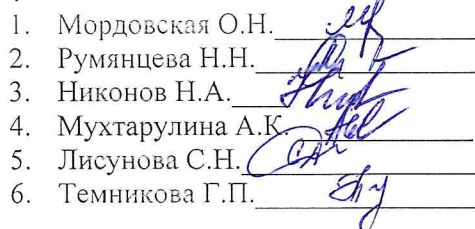 1. Мордовская О.Н.
2. Румянцева Н.Н.
3. Никонов Н.А.
4. Мухтарулина А.К.
5. Лисунова С.Н.
6. Темникова Г.П.